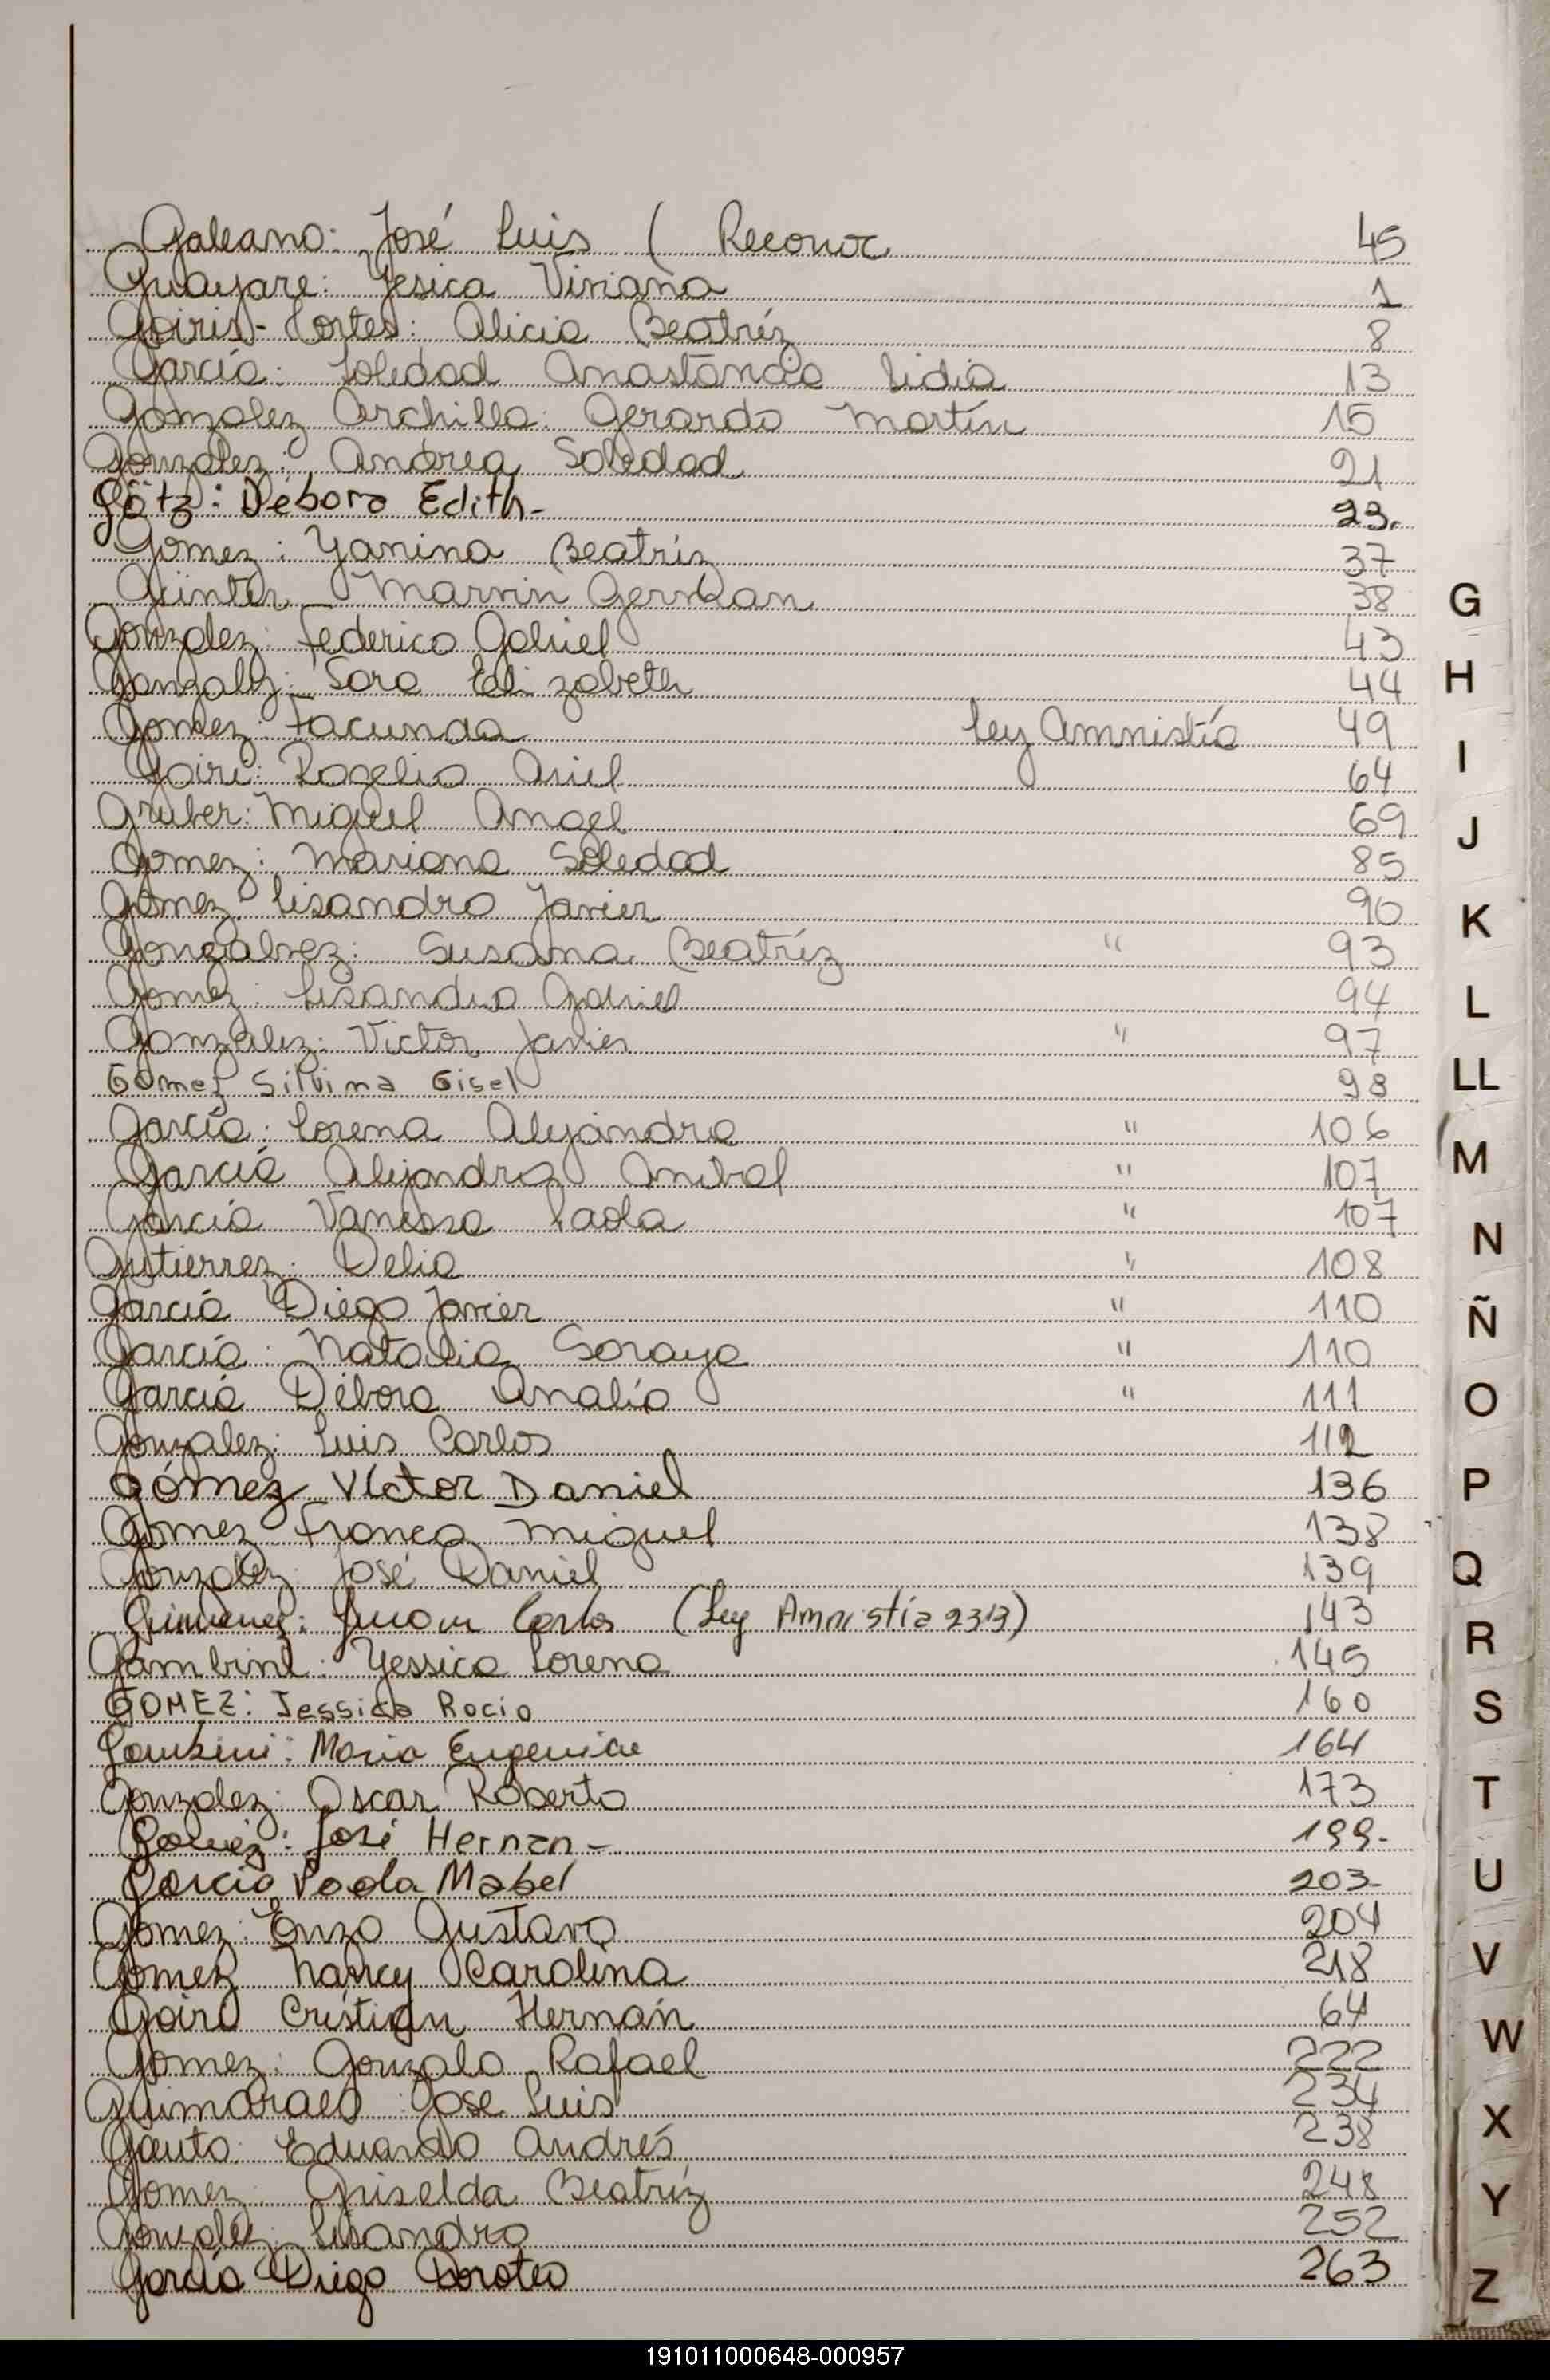 Galeano: José Luis ( Reconoc 45
Guayare: Yesica Viviana 1
Goiris - Cortes: Alicia Beatríz 8
García: Soledad Anastancia Lidia 13
Gonzalez Archilla: Gerardo Martín 15
Gonzalez: Andrea Soledad 21
Götz: Débora Edith - 23.
Gomez: Yanina Beatriz 37
Günter Marvin German 38
Gonzalez: Federico Gabriel 43
Gonzalez: Sara Elizabeth 44
Gomez: Facundo Ley Amnistía 49
Goiri: Rogelio Ariel 64
Gruber: Miguel Angel 69
Gomez: Mariana Soledad 85
Gomez: Lisandro Javier 90
Gonzalvez: Susana Beatríz " 93
Gomez: Lisandro Gabriel 94
Gonzalez: Victor Javier " 97
Gomez Silvina Gisel 98
García: Lorena Alejandra " 106
García Alejandro Anibal " 107
García Vanessa Paola " 107
Gutierrez: Delia " 108
García Diego Javier " 110
García: Natalia Soraya " 110
García Débora Analía " 111
Gonzalez: Luis Carlos 112
Gómez Víctor Daniel 136
Gomez Franco Miguel 138
Gonzalez: José Daniel 139
Gimenez: Juan Carlos (Ley Amnistía 2313) 143
Gambini: Yessica Lorena 145
GOMEZ: Jessica Rocio 160
Gambini: Maria Eugenia 164
Gonzalez: Oscar Roberto 173
Gomez: José Hernan - 199.
García Paola Mabel 203-
Gomez: Enzo Gustavo 204
Gomez Nancy Carolina 218
Goiri Cristian Hernán 64
Gomez: Gonzalo Rafael 222
Guimaraes: Jose Luis 234
Gauto: Eduardo Andrés 238
Gomez: Griselda Beatríz 248
Gonzalez: Lisandro 252
García Diego Doroteo 263
G
H
I
J
K
L
LL
M
N
Ñ
O
P
Q
R
S
T
U
V
W
X
Y
Z
191011000648-000957